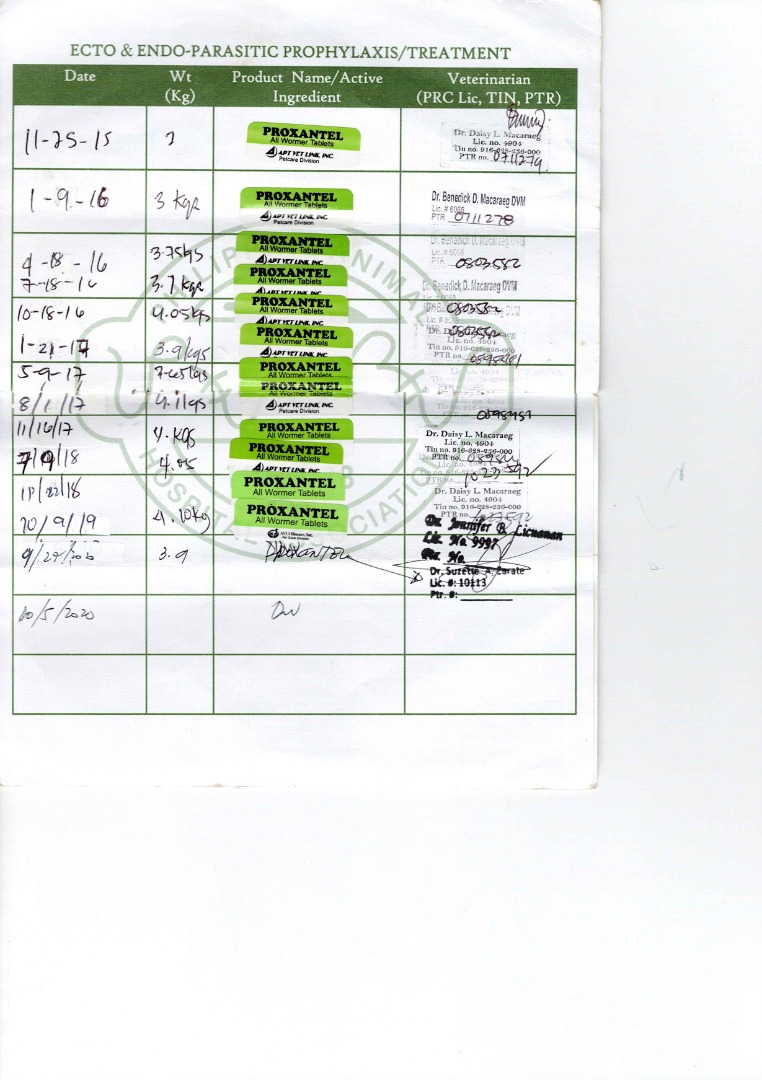 ECTO & ENDO-PARASITIC PROPHYLAXIS/TREATMENT
Date Wt (Kg) Product Name/Active Ingredient Veterinarian (PRC Lic, TIN, PTR)
11-25-15
PROXANTEL
All Wormer Tablets
APT VET LINK, INC.
Petcare Division
Dr. Daisy L. Macaraeg
Lic. no. 4904
Tin no. 916-628-256-000
PTR no. 0711279
1-9-16 3 kgs
PROXANTEL
All Wormer Tablets
APT VET LINK, INC.
Petcare Division
Dr. Benedick D. Macaraeg DVM
Lic. # 6068
PTR 0711278
4-18-16 3.75kgs
PROXANTEL
All Wormer Tablets
APT VET LINK, INC.
Dr. Benedick D. Macaraeg DVM
PTR 0803582
7-18-16 3.7 kgs
PROXANTEL
All Wormer Tablets
APT VET LINK, INC.
Dr. Benedick D. Macaraeg DVM
0803582
10-18-16 4.05kgs
PROXANTEL
All Wormer Tablets
1-21-17 3.9kgs
PROXANTEL
All Wormer Tablets
APT VET LINK, INC.
Lic. no. 4904
Tin no. 916-628-256-000
PTR no.
5-9-17
PROXANTEL
All Wormer Tablets
8/1/17
PROXANTEL
All Wormer Tablets
APT VET LINK, INC.
Petcare Division
11/16/17 4. kgs
PROXANTEL
All Wormer Tablets
Dr. Daisy L. Macaraeg
Lic. no. 4904
Tin no. 916-628-256-000
PTR no.
7/9/18 4.05
PROXANTEL
All Wormer Tablets
APT VET LINK, INC.
PROXANTEL
All Wormer Tablets
Dr. Daisy L. Macaraeg
Lic. no. 4904
Tin no. 916-628-256-000
PTR no.
10/9/19 4.10kg
PROXANTEL
All Wormer Tablets
Dr. Jennifer B. Licuanan
Lic. No. 9997
Ptr. No.
9/27/2020 3.9 PROXANTEL
Dr. Suzette A. Zarate
Lic. #: 10113
Ptr. #:
10/5/2020
PHILIPPINE ANIMAL HOSPITAL ASSOCIATION